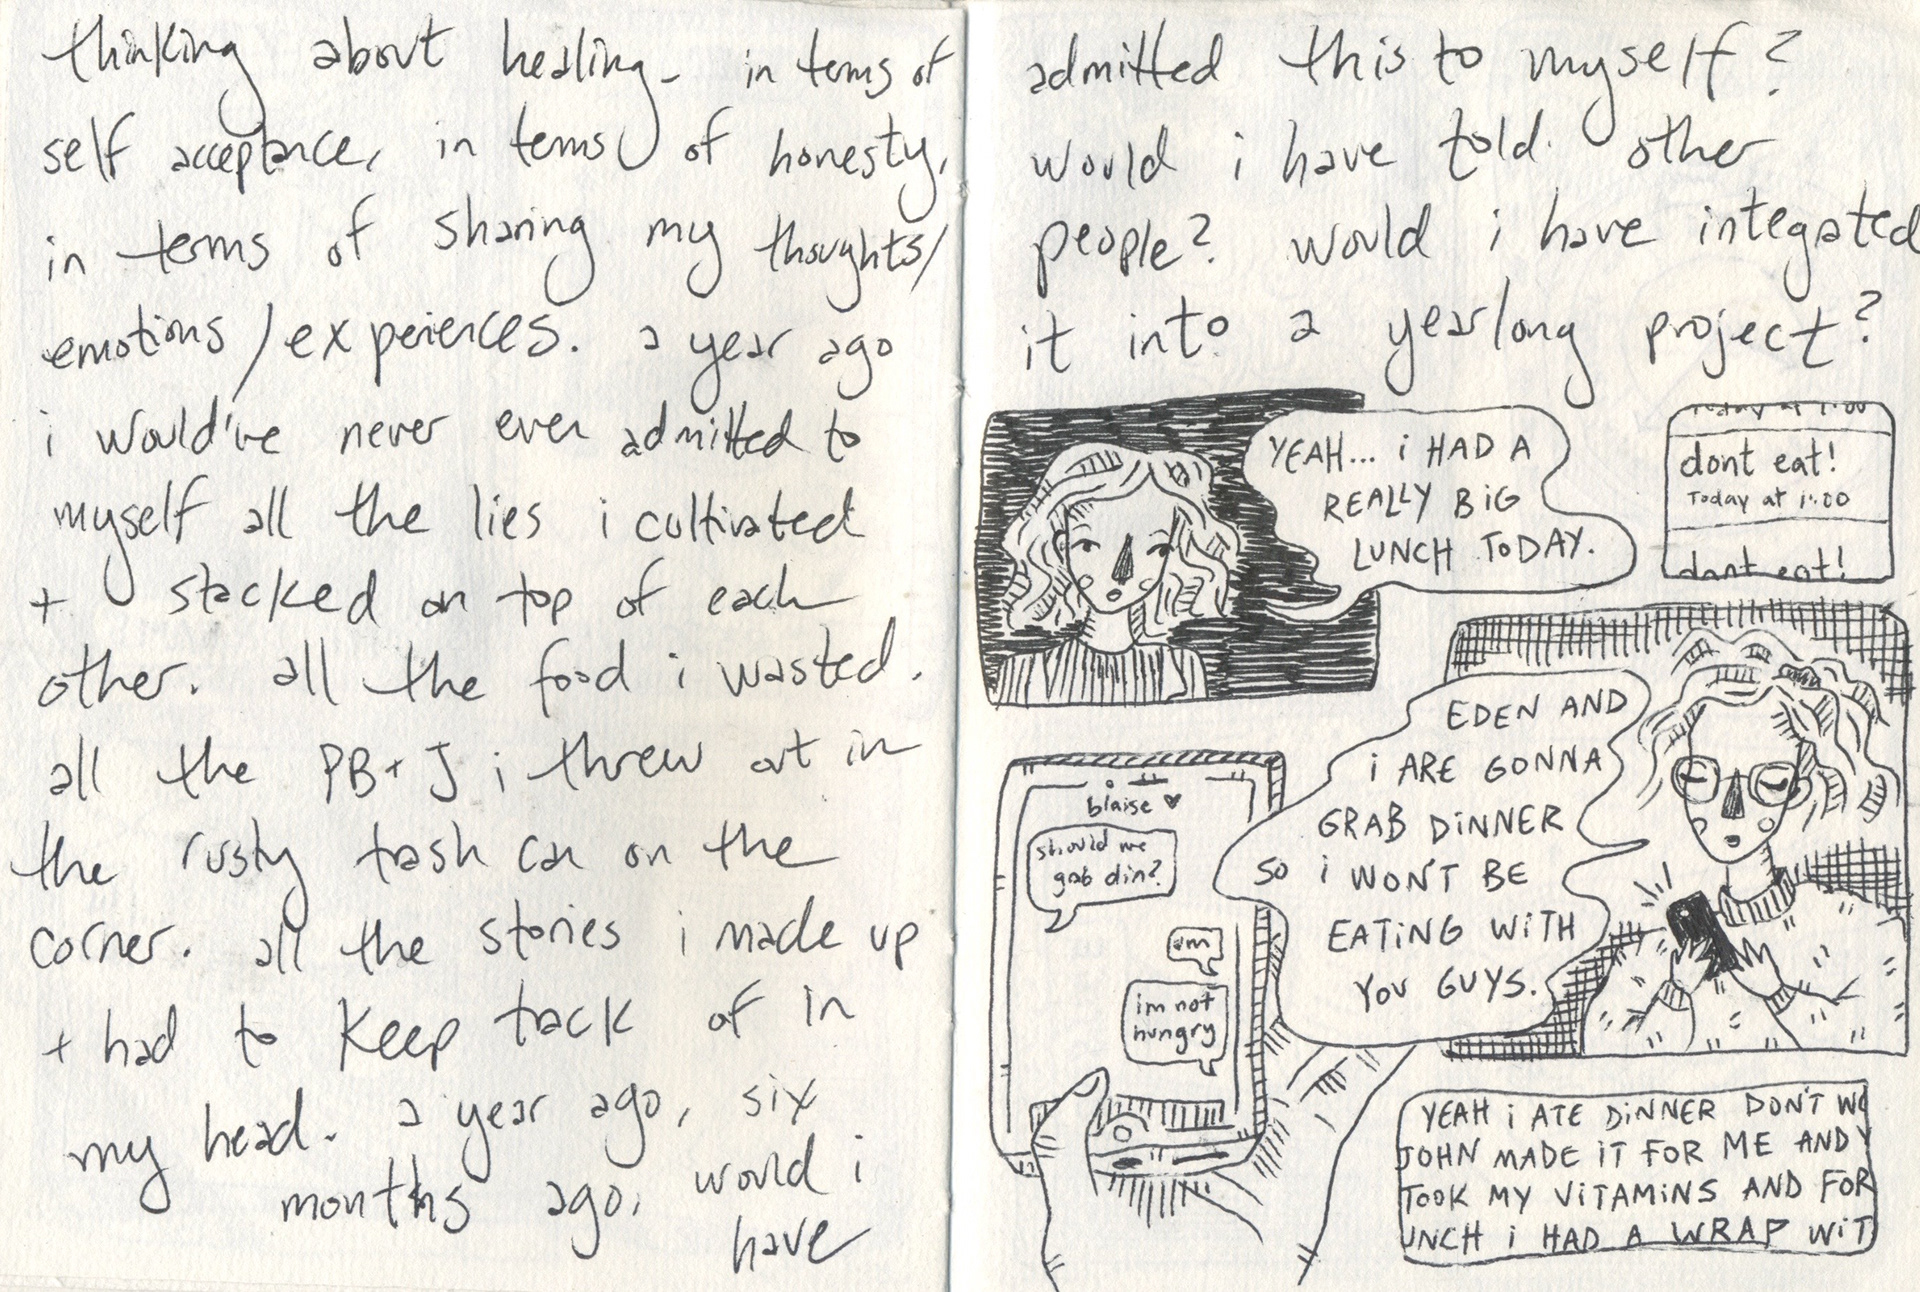 thinking about healing- in terms of
self acceptance, in terms of honesty,
in terms of sharing my thoughts/
emotions/experiences. a year ago
i would've never ever admitted to
myself all the lies i cultivated
+ stacked on top of each
other. all the food i wasted.
all the PB+J i threw out in
the rusty trash can on the
corner. all the stories i made up
+ had to keep track of in
my head. a year ago, six
months ago, would i
have
admitted this to myself?
would i have told other
people? would i have integated
it into a yearlong project?
YEAH... i HAD A
REALLY BiG
LUNCH TODAY.
Today at 1:00
dont eat!
Today at 1:00
dont eat!
EDEN AND
i ARE GONNA
GRAB DiNNER
SO i WON'T BE
EATiNG WiTH
YOU GUYS.
blaise ♥
should we
grab din?
um
im not
hungry
YEAH i ATE DiNNER DON'T WO
JOHN MADE iT FOR ME AND Y
TOOK MY ViTAMiNS AND FOR
UNCH i HAD A WRAP WiT